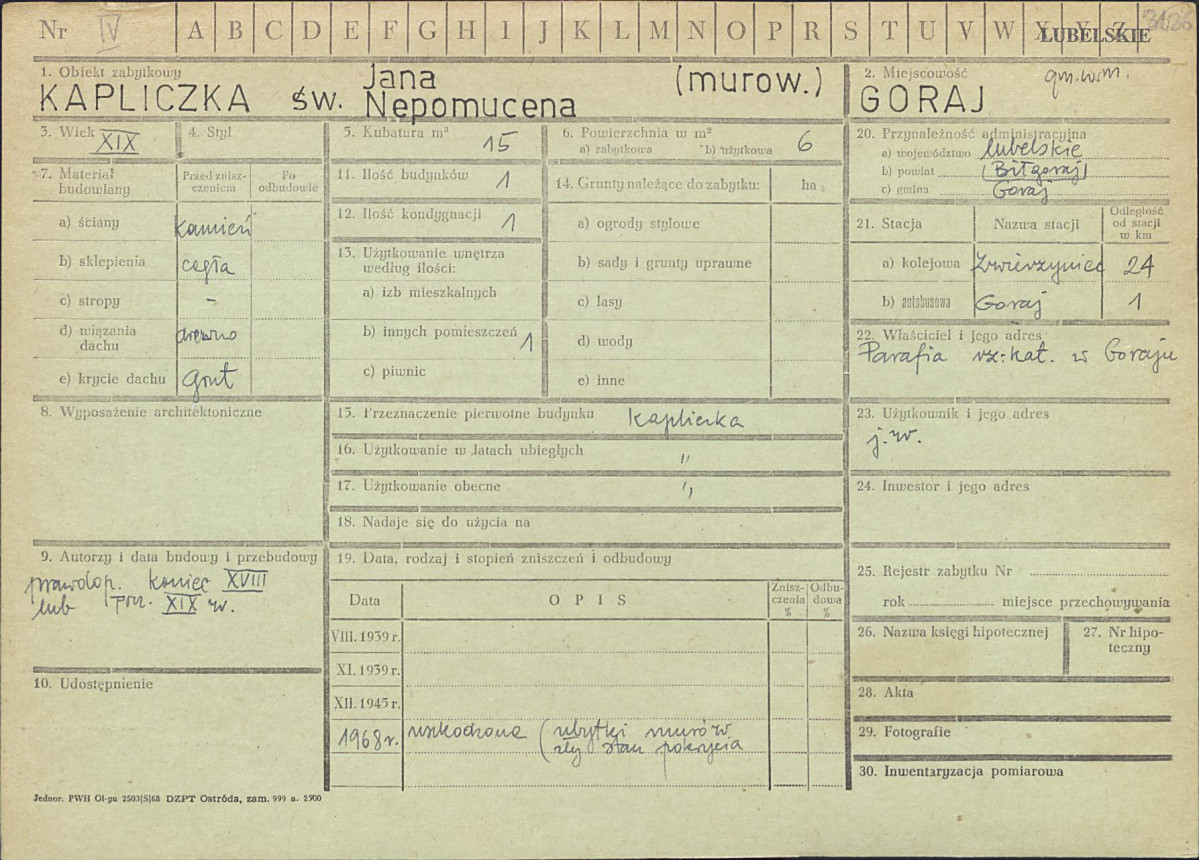 Nr IV A B C D E F G H I J K L M N O P R S T U V W X Y Z LUBELSKIE
1. Obiekt zabytkowy
KAPLICZKA św. Jana Nepomucena (murow.)
2. Miejscowość gm.w.m.
GORAJ
3. Wiek XIX
4. Styl
5. Kubatura m³ 15
6. Powierzchnia w m² 6
a) zabytkowa b) użytkowa
7. Materiał budowlany
Przed zniszczeniem
Po odbudowie
a) ściany kamień
b) sklepienia cegła
c) stropy -
d) wiązania dachu drewno
e) krycie dachu gont
11. Ilość budynków 1
12. Ilość kondygnacji 1
13. Użytkowanie wnętrza
według ilości:
a) izb mieszkalnych
b) innych pomieszczeń 1
c) piwnic
14. Grunty należące do zabytku: ha
a) ogrody stylowe
b) sady i grunty uprawne
c) lasy
d) wody
e) inne
20. Przynależność administracyjna
a) województwo lubelskie
b) powiat (Biłgoraj)
c) gmina Goraj
21. Stacja
Nazwa stacji
Odległość
od stacji
w km
a) kolejowa Zwierzyniec 24
b) autobusowa Goraj 1
22. Właściciel i jego adres
Parafia rz.-kat. w Goraju
8. Wyposażenie architektoniczne
15. Przeznaczenie pierwotne budynku kapliczka
16. Użytkowanie w latach ubiegłych "
17. Użytkowanie obecne "
18. Nadaje się do użycia na
23. Użytkownik i jego adres
j.w.
24. Inwestor i jego adres
9. Autorzy i data budowy i przebudowy
prawdop. koniec XVIII
lub pocz. XIX w.
19. Data, rodzaj i stopień zniszczeń i odbudowy
Data
O P I S
Zniszczenia %
Odbudowa %
VIII. 1939 r.
XI. 1939 r.
XII. 1945 r.
1968 r. uszkodzona (ubytki murów
zły stan pokrycia
25. Rejestr zabytku Nr
rok miejsce przechowywania
26. Nazwa księgi hipotecznej
27. Nr hipoteczny
10. Udostępnienie
28. Akta
29. Fotografie
30. Inwentaryzacja pomiarowa
Jednor. PWH Ol-pn 2503|S|68 DZPT Ostróda, zam. 999 n. 2500